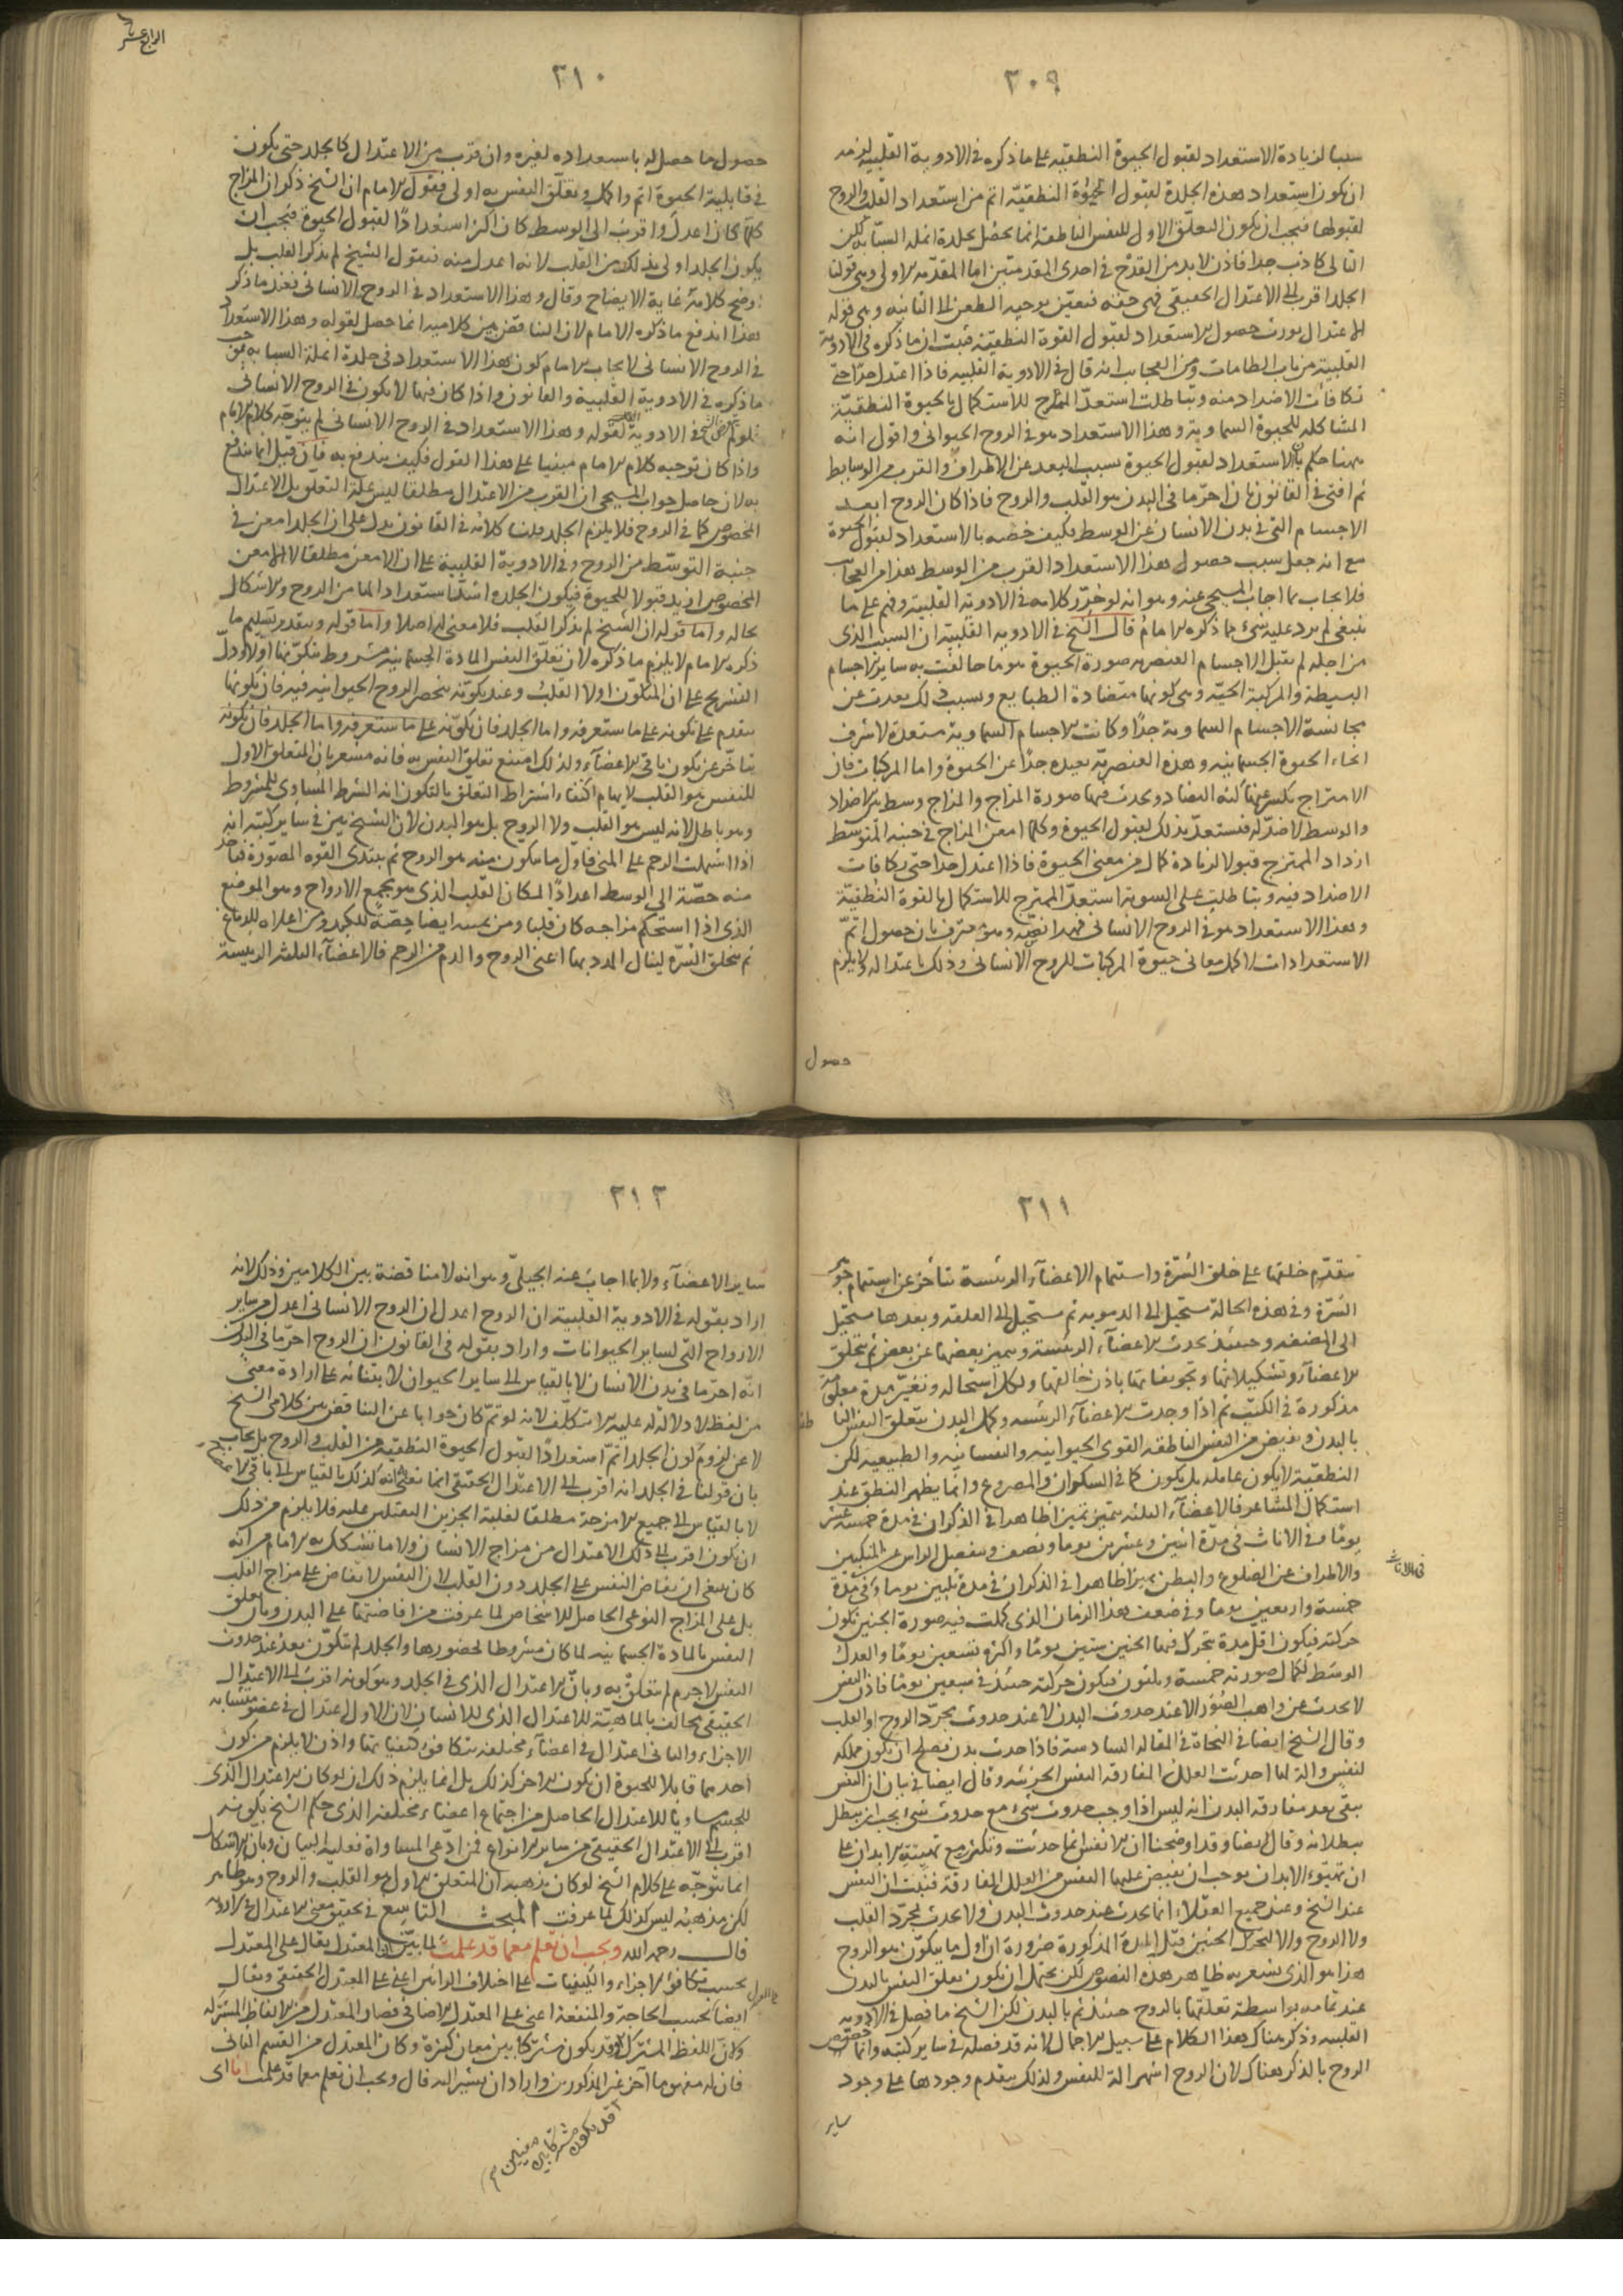 ٣٠٩
سببا لزيادة الاستعداد لقبول الحيوة النطقيه على ما ذكره فى الادوية القلبيه لزمه
ان يكون استعداد هذه الجلدة لقبول الحيوة النطقيّة اتم من استعداد القلب والروح
لقبولها فيجب ان يكون التعلّق الاول للنفس الناطقة انما يحصل بجلدة انملة السبّابه لكن
التالى كاذب جدا فاذن لا بد من القدح فى احدى المقدمتين اما المقدمه الاولى وهى قولنا
الجلد اقرب الى الاعتدال الحقيقى فهى حقه فتعيّن توجيه الطعن الى الثانيه وهى قوله
الاعتدال يورث حصول الاستعداد لقبول القوة النطقيّة فثبت ان ما ذكره فى الادوية
القلبية من باب الطامات ومن العجايب انه قال فى الادوية القلبيه فاذا اعتدل جدّا حتى
تكافات الاضداد منه وتباطلت استعدّ الممتزج للاستكمال بالحيوة النطقيّة
المشاكله للحيوة السماوية وهذا الاستعداد هو فى الروح الحيوانى واقول انه
ههنا حكم بان الاستعداد لقبول الحيوة بسبب البعد عن الاطراف والقرب من الوسايط
ثم افتى فى القانون بان احرّ ما فى البدن هو القلب والروح فاذا كان الروح ابعد
الاجسام التى فى بدن الانسان عن الوسط فكيف خصّه بالاستعداد لقبول الحيوة
مع انه جعل سبب حصول هذا الاستعداد القرب من الوسط هذا من العجايب
فلا يجاب بما اجاب المسيحى عنه وهو انه لو حرّر كلامه فى الادوية القلبية وفهم على ما
ينبغى لم يرد عليه شىء مما ذكره الامام قال الشيخ فى الادويه القلبيّة ان السبب الذى
من اجله لم تقبل الاجسام العنصريه صورة الحيوة هو ما خالفت به ساير الاجسام
البسيطة والمركبة الحيّه وهى كونها متضادة الطبايع وبسبب ذلك بعدت عن
مجانسة الاجسام السماوية جدًا وكانت الاجسام السماوية مستعدة لاشرف
انحاء الحيوة الجسمانيه وهذه العنصريّة بعيده جدًا عن الحيوة واما المركبات فان
الامتزاج يكسر عنها كنه التضاد ويحدث فيها صورة المزاج والمزاج وسط بين الاضداد
والوسط لا ضدّ له فتستعدّ بذلك لقبول الحيوة وكلما امعن المزاج فى جنبة التوسط
ازداد الممتزج قبولا لزيادة كمال من معنى الحيوة فاذا اعتدل جدا حتى تكافات
الاضداد فيه وتباطلت على السوية استعدّ الممتزج للاستكمال بالقوة النطقيّة
وهذا الاستعداد هو فى الروح الانسانى فهذا نصّه وهو معترف بان حصول اتمّ
الاستعدادات لاكمل معانى حيوة المركبات للروح الانسانى وذلك باعتداله ولا يلزم
حصول
٣١٠
الرابع عشر
حصول ما حصل له باستعداده لغيره وان قرب من الاعتدال كالجلد حتى يكون
فى قابلية الحيوة اتم واكمل وبتعلّق النفس به اولى فيقول الامام ان الشيخ ذكر ان المزاج
كلّما كان اعدل واقرب الى الوسط كان اكثر استعدادًا لقبول الحيوة فيجب ان
يكون الجلد اولى بذلك من القلب لانه اعدل منه فنقول الشيخ لم يذكر القلب بل
اوضح كلامه غاية الايضاح وقال وهذا الاستعداد فى الروح الانسانى فعند ما ذكر
هذا اندفع ما ذكره الامام لان التناقض بين كلاميه انما حصل لقوله وهذا الاستعداد
فى الروح الانسانى لايجاب الامام كون هذا الاستعداد فى جلدة انملة السبابه بحسب
ما ذكره فى الادوية القلبية والقانون واذا كان فيهما لا يكون فى الروح الانسانى
فلو لم يتعرض الشيخ فى الادوية القلبية لقوله وهذا الاستعداد فى الروح الانسانى لم يتوجّه كلام الامام
واذا كان توجيه كلام الامام مبنيا على هذا القول فكيف يندفع به فان قيل انما يندفع
به لان حاصل جواب المسيحى ان القرب من الاعتدال مطلقا ليس علّة التعلّق بل الاعتدال
المخصوص كما فى الروح فلا يلزم الجلد قلنا كلامه فى القانون يدل على ان الجلد امعن فى
جنبة التوسّط من الروح وفى الادوية القلبية على ان الامعن مطلقا لا الامعن
المخصوص ازيد قبولا للحيوة فيكون الجلد اشدّ استعدادا لها من الروح والاشكال
بحاله واما قوله ان الشيخ لم يذكر القلب فلا معنى له اصلا واما قوله وبتقدير تسليم ما
ذكره الامام لا يلزم ما ذكره لان تعلّق النفس المادة الجسمانيه مشروط بتكوّنها اولا ودلّ
التشريح على ان المتكوّن اولا القلب وعند تكوّنه ينحصر الروح الحيوانيه فيه فان تكونها
يتقدم على تكونه على ما ستعرفه واما الجلد فان تكوّنه على ما ستعرفه واما الجلد فان تكونه
يتاخّر عن تكون باقى الاعضآء ولذلك امتنع تعلق النفس به فانه مشعر بان المتعلق الاول
للنفس هو القلب لايهام اكتفاء اشتراط التعلّق بالتكون انه الشرط المساوى للمشروط
وهو باطل لانه ليس هو القلب ولا الروح بل هو البدن لان الشيخ بيّن فى ساير كتبه انه
اذا اشتملت الرحم على المنى فاوّل ما يتكون منه هو الروح ثم يبتدى القوه المصوّرة فتاخذ
منه حصّة الى الوسط اعدادًا لمكان القلب الذى هو مجمع الارواح وهو الموضع
الذى اذا استحكم مزاجه كان قلبا ومن يمينه ايضا حصّةً للكبد ومن اعلاه للدماغ
ثم تتخلق السّرّه لينال المدد بها اعنى الروح والدم من الرحم فالاعضآء الثلثه الرئيسة
٣١١
يتقدّم خلقها على خلق السّرّة واستتمام الاعضآء الرئيسة يتأخر عن استتمام جوهر
السّرّة وفى هذه الحالة تستحيل الى الدمويه ثم تستحيل الى العلقه وبعدها تستحيل
الى المضغه وحينئذ يحدث الاعضآء الرئيسة ويتميز بعضها عن بعض ثم يتخلق
الاعضآء وتشكيلاتها وتجويفاتها باذن خالقها ولكل استحاله وتغيّر مدة معلومة
مذكورة فى الكتب ثم اذا وجدت الاعضآء الرئيسه وكمل البدن يتعلّق النفس الناطقه
بالبدن ويفيض من النفس الناطقه القوى الحيوانيه والنفسانيه والطبيعيه لكن
النطقيّة لا يكون عاملة بل يكون كما فى السكران والمصروع وانما يظهر النطق عند
استكمال المشاعر فالاعضآء الثلثه يتميّز تميزا ظاهرا فى الذكران فى مدة خمسة عشر
يومًا وفى الاناث فى مدّة اثنين وعشرين يوما ونصف وينفصل الراس عن المنكبين
والاطراف عن الضلوع والبطن تميزا ظاهرا فى الذكران فى مدة ثلثين يوما وفى مدّة
فى الاناث
خمسة واربعين يوما وفى ضعف هذا الزمان الذى كملت فيه صورة الجنين تكون
حركته فيكون اقلّ مدة يتحرك فيها الجنين ستين يومًا واكثره تسعين يومًا والعدل
الوسط لكمال صورته خمسة وثلثون فيكون حركته حينئذ فى سبعين يومًا فاذن النفس
لا يحدث عن واهب الصّور الا عند حدوث البدن لا عند حدوث مجرّد الروح او القلب
وقال الشيخ ايضا فى النجاة فى المقاله السادسة فاذا حدث بدن فصلح ان يكون مملكه
لنفس والة لها احدثت العلل المفارقه النفس الجزئيه وقال ايضا فى بيان ان النفس
تبقى بعد مفارقة البدن انه ليس اذا وجب حدوث شىء مع حدوث شىء يجب ان يبطل
ببطلانه وقال ايضا وقد اوضحنا ان الانفس انما حدثت وتكثّر مع تهيئة الابدان على
ان تهيّؤ الابدان يوجب ان يفيض عليها النفس من العلل المفارقة فثبت ان النفس
عند الشيخ وعند جميع العقلاء انما يحدث عند حدوث البدن ولا يحدث بمجرّد القلب
ولا الروح والا لتحرّك الجنين قبل المدة المذكورة ضرورة ان اول ما يتكوّن هو الروح
هذا هو الذى يشعر به ظاهر هذه النصوص لكن يحتمل ان يكون تعلق النفس بالبدن
عند تمامه بواسطة تعلقها بالروح حينئذ ثم بالبدن لكن الشيخ ما فصل فى الادويه
القلبيه وذكر هناك هذا الكلام على سبيل الاجمال لانه قد فصله فى ساير كتبه وانما خصّص
الروح بالذكر هناك لان الروح اشهر الة للنفس ولذلك يتقدم وجودها على وجود
ساير
٣١٢
ساير الاعضآء ولا بما اجاب عنه الجيلىّ وهو انه لا مناقضة بين الكلامين وذلك لانه
اراد بقوله فى الادوية القلبية ان الروح اعدل ان الروح الانسانى اعدل من ساير
الارواح التى لساير الحيوانات واراد بقوله فى القانون ان الروح احرّ ما فى البدن
انّه احرّ ما فى بدن الانسان لا بالقياس الى ساير الحيوان لابتنائه على ارادة معنىً
من لفظ لا دلالة له عليه الا بتكلف لانه لو تمّ كان جوابا عن التناقض بين كلامى الشيخ
لا عن لزوم كون الجلد اتمّ استعدادًا لقبول الحيوة النطقيّه من القلب والروح بل يجاب
بان قولنا فى الجلد انه اقرب الى الاعتدال الحقيقى انما نعنى انه كذلك بالقياس الى باقى الاعضاء
لا بالقياس الى جميع الامزجة مطلقا لغلبة الجزين الثقيلين عليه فلا يلزم من ذلك
ان يكون اقرب الى ذلك الاعتدال من مزاج الانسان ولا ما تشكك به الامام من انه
كان ينبغى ان يفاض النفس على الجلد دون القلب لان النفس لا تفاض على مزاج القلب
بل على المزاج النوعى الحاصل للاشخاص لما عرفت من افاضتها على البدن وبان تعلق
النفس بالمادة الجسمانيه لما كان مشروطا بحضورها والجلد لم يتكوّن بعد عند حدوث
النفس لا جرم لم تتعلّق به وبانّ الاعتدال الذى فى الجلد وهو كونه اقرب الى الاعتدال
الحقيقى مخالف بالماهيّة للاعتدال الذى للانسان لان الاول اعتدال فى عضو متشابه
الاجزاء والثانى اعتدال فى اعضآء مختلفه تتكافؤ كيفياتها واذن لا يلزم من كون
احدهما قابلا للحيوة ان يكون الاخر كذلك بل انما يلزم ذلك ان لو كان الاعتدال الذى
للجلد مساويا للاعتدال الحاصل من اجتماع اعضاء مختلفه الذى حكم الشيخ بكونه
اقرب الى الاعتدال الحقيقى من ساير الانواع فمن ادّعى المساواة فعليه البيان وبان الاشكال
انما يتوجّه على كلام الشيخ لو كان مذهبه ان المتعلق الاول هو القلب والروح وهو ظاهر
لكن مذهبه ليس كذلك لما عرفت المبحث التاسع فى تحقيق معنى الاعتدال فى الادويه
قال رحمه الله ويجب ان تعلم مع ما قد علمت لما بيّن ان المعتدل يقال على المعتدل
بحسب تكافؤ الاجزاء والكيفيات على اختلاف الرايين اعنى على المعتدل الحقيقى ويقال
ايضا بحسب الحاجة والمنفعة اعنى على المعتدل الاضافى فصار المعتدل من الالفاظ المشتركه
وكان اللفظ المشترك قد يكون مشتركا بين معان كثيرة وكان المعتدل من القسم الثانى
فان له مفهوما آخر غير المذكورين واراد ان يشير اليه قال ويجب ان تعلم مع ما قد علمت انا اى
قد يكون مشتركا بين معنيين